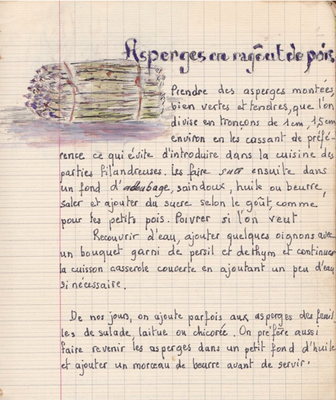 Asperges en ragoût de pois
Prendre des asperges montées,
bien vertes et tendres, que l'on
divise en tronçons de 1cm, 1,5cm
environ en les cassant de préfé-
rence ce qui évite d'introduire dans la cuisine des
parties filandreuses. Les faire suer ensuite dans
un fond d'adoubage, saindoux, huile ou beurre,
saler et ajouter du sucre selon le goût, comme
pour les petits pois. Poivrer si l'on veut.
Recouvrir d'eau, ajouter quelques oignons avec
un bouquet garni de persil et de thym et continuer
la cuisson casserole couverte en ajoutant un peu d'eau
si nécessaire.
De nos jours, on ajoute parfois aux asperges des feuil
les de salade, laitue ou chicorée. On préfère aussi
faire revenir les asperges dans un petit fond d'huile
et ajouter un morceau de beurre avant de servir.